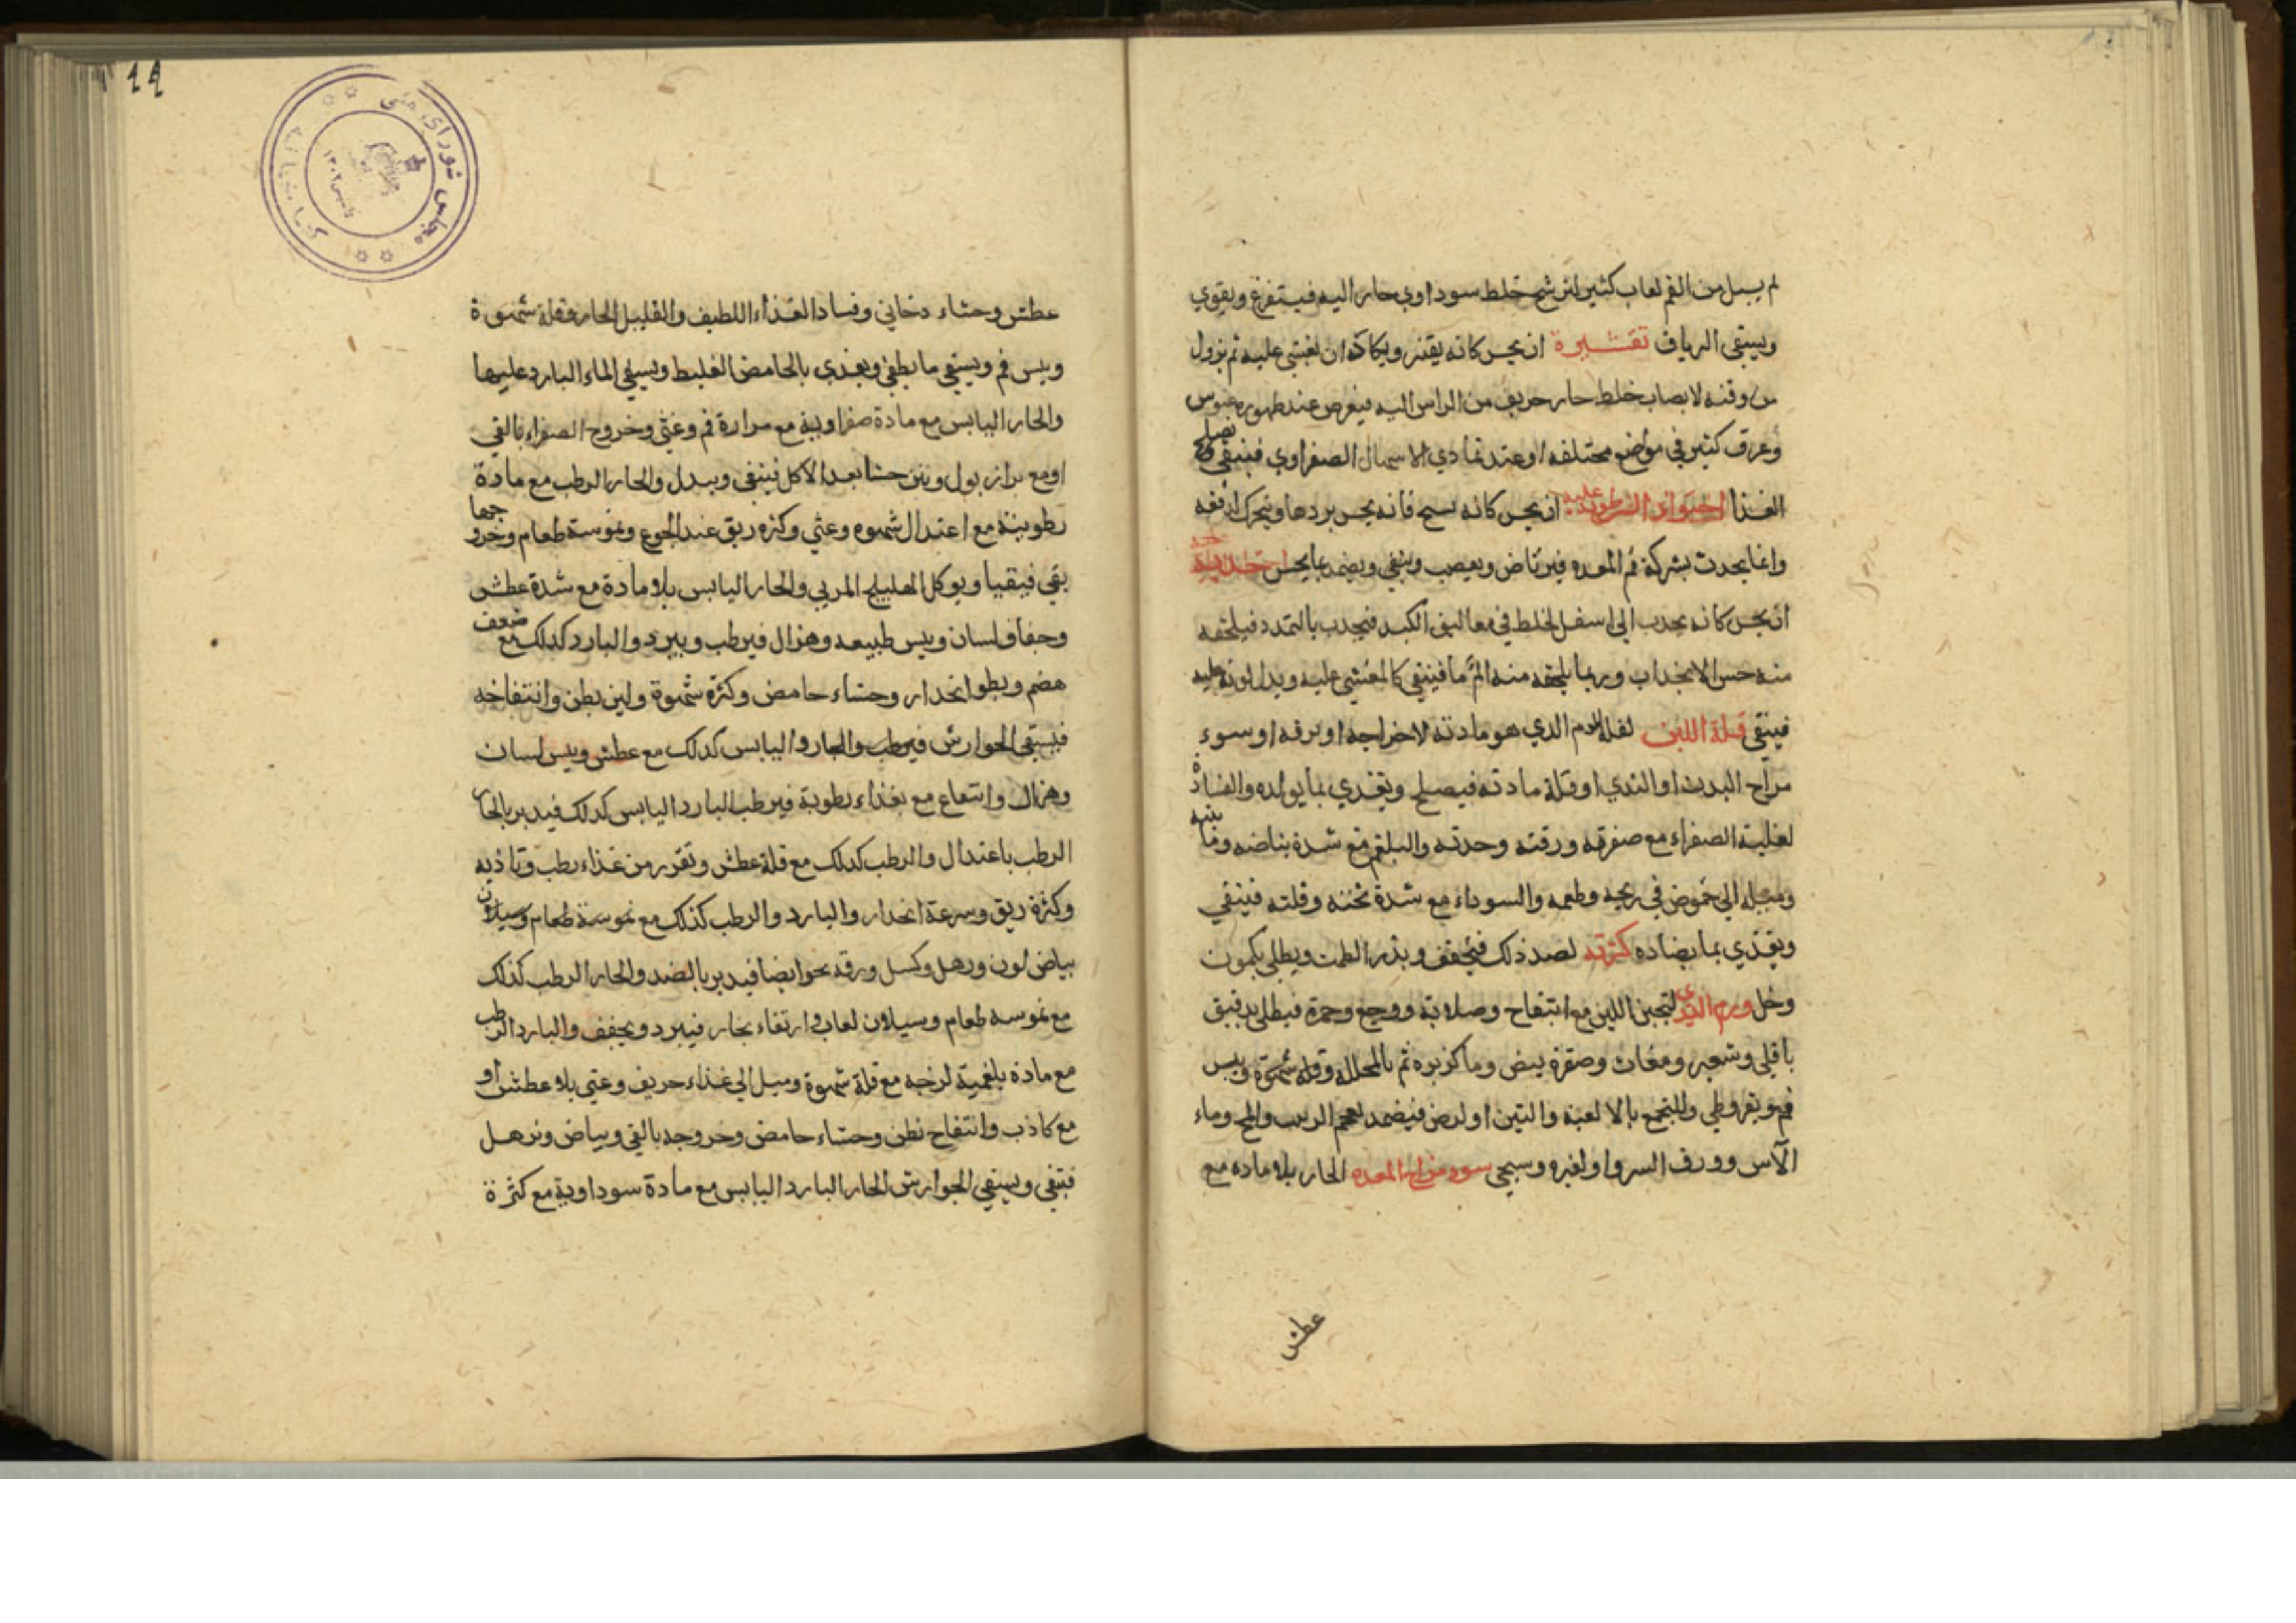 لم يسل من الفم لعاب كثير لترشح خلط سوداوي حار اليه فيستفرغ ويقوي
ويسقي الرياف تقشيرة ان يحس كانه يقشر ويكاد ان يغشي عليه ثم يزول
من وقته لانصاب خلط حار حريف من الراس اليه فيعرض عند ظهوره عبوس
وعرق كثير في مواضع مختلفه او عند تمادي الاسهال الصفراوي فينقي ويصلح
الغذا عليه ان يحس كانه يسبح فانه يحس بردها ويتحرك
وانما يحدث بشركة فم المعده فيرتاض ويعصب وينقي ويضمد بما يحس
ان يحس كانه يجذب الي اسفل لخلط في معاليق الكبد فيجذب بالتمدد فيلحقه
منه حس الانجذاب وربما يلحقه منه الم ما فينقي كالمغشي عليه ويدل لونه عليه
فينقي قلة اللبن لقلة الدم الذي هو مادته لاخراجه او نزفه او سوء
مزاج البدن او الثدي او قلة مادته فيصلح ويغذي بما يولده والفساد
لغلبة الصفراء مع صفرته ورقته وحدته والبلغم مع شدة بياضه ومائيته
وميله الي حموض في ريحه وطعمه والسوداء مع شدة ثخنه وقلته فينقي
ويغذي بما يضاده كثرته لضد ذلك فيجفف ويدر الطمث ويطلي بكمون
وخل ورم الثدي لتجبن اللبن مع انتفاخ وصلابة ووجع وحمرة فيطلي بدقيق
باقلي وشعير ومغاث وصفرة بيض وما كزبره ثم بالمحلله وقلة شهوة ويبس
فم وبقيروطي وللتجمع بالالعبه والتين او لرض فيضمد بعجم الزبيب والملح وماء
الآس وورق السرو او لغيره وسيجي سوء مزاج المعده الحار بلا ماده مع
عطش
٩٩
مجلس شورای ملی
کتابخانه
عطش وجشاء دخاني وفساد الغذاء اللطيف والقليل الحار وقلة شهوة
ويبس فم ويسقي ما يطفي ويغذي بالحامض الغليظ ويسقي الماء البارد عليها
والحار اليابس مع مادة صفراوية مع مرارة فم وغثي وخروج الصفراء بالقي
او مع براز بول ونتن جشا بعد الاكل فينقي ويبدل والحار الرطب مع مادة
رطوبية مع اعتدال شهوه وغثي وكثره ريق عند الجوع وغموسة طعام وخروجها
بقي فيقيا ويوكل الهليلج المربي والحار اليابس بلا مادة مع شدة عطش
وجفاف لسان ويبس طبيعه وهزال فيرطب ويبرد والبارد كذلك مع ضعف
هضم وبطو انحدار وجشاء حامض وكثرة شهوة ولين بطن وانتفاخه
فيسقي الجوارش فيرطب والحار واليابس كذلك مع عطش ويبس لسان
وهزال وانتفاع مع بغذاء رطوبة فيرطب البارد اليابس كذلك فيدبر بالحار
الرطب باعتدال والرطب كذلك مع قلة عطش وتقزز من غذاء رطب وتاذيه
وكثرة ريق وسرعة انحدار والبارد والرطب كذلك مع غموسة طعام وسيلان
بياض لون ورهل وكسل ورقه نحو ايضا فيدبر بالضد والحار الرطب كذلك
مع غموسه طعام وسيلان لعاب وارتقاء بخار فيبرد ويجفف والبارد الرطب
مع مادة بلغمية لزجه مع قلة شهوة وميل الي غذاء حريف وغثي بلا عطش او
مع كاذب وانتفاخ بطن وجشاء حامض وخروجه بالقي وبياض وترهل
فينقي ويسقي الجوارش الحار البارد اليابس مع مادة سوداوية مع كثرة